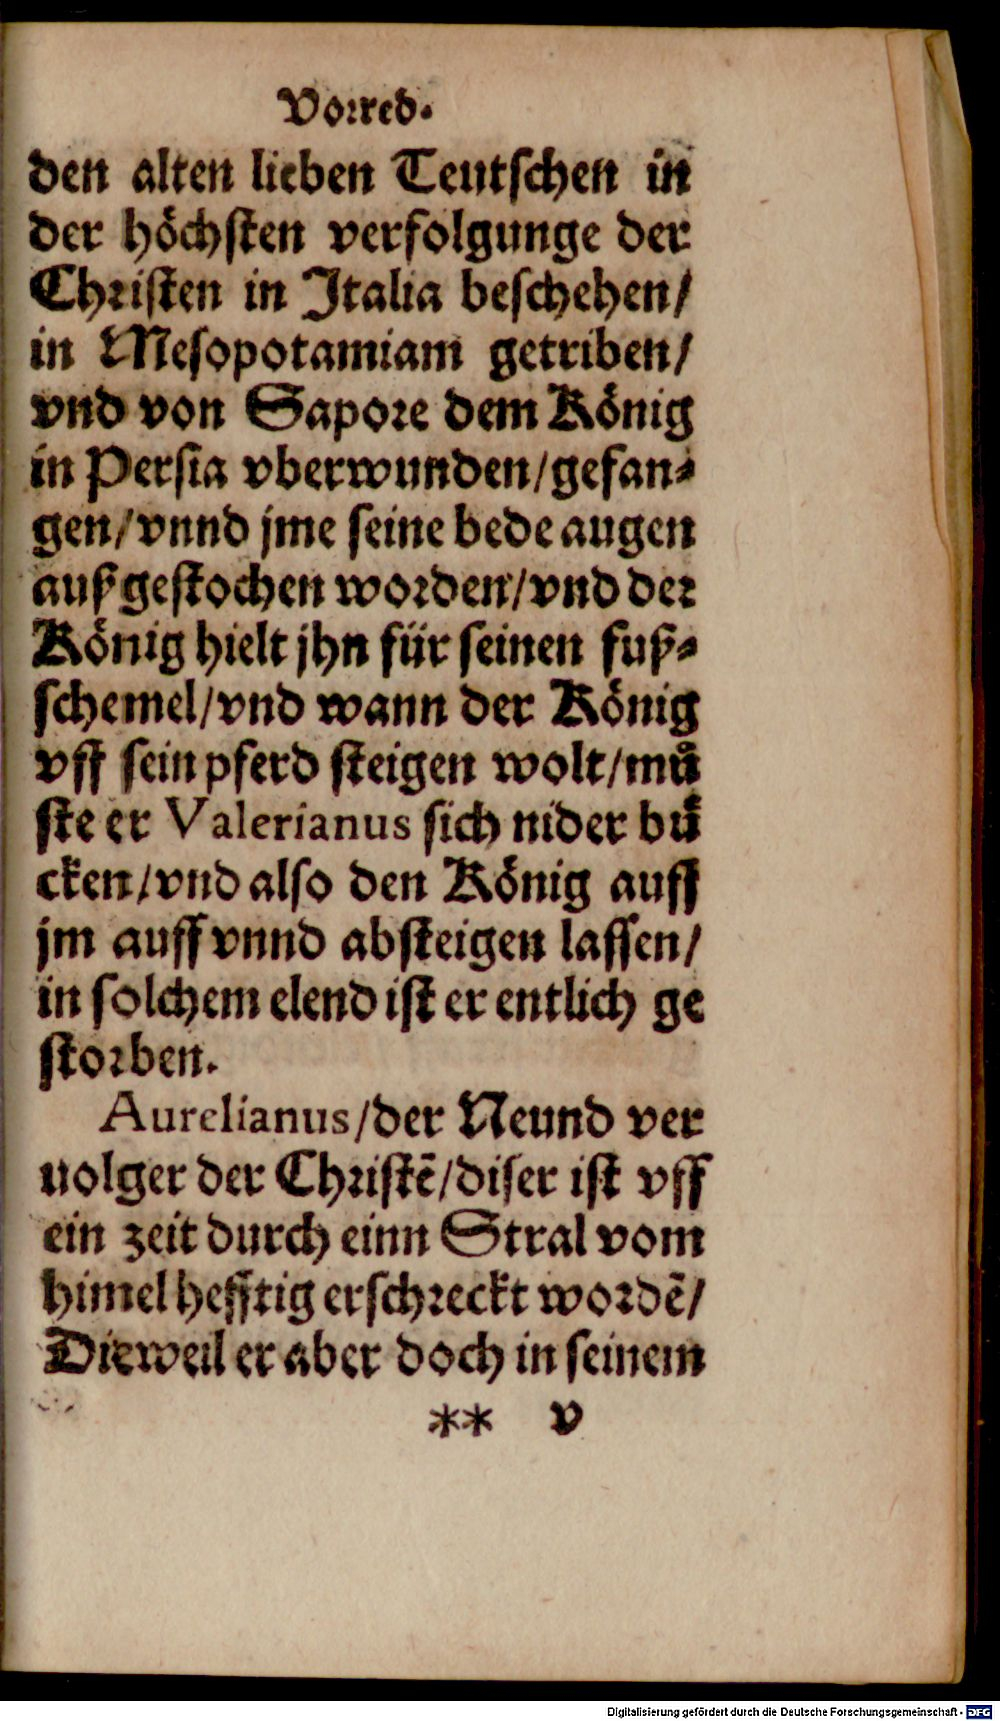 Vorred.
den alten lieben Teutschen in
der höchsten verfolgunge der
Christen in Italia beschehen/
in Mesopotamiam getriben/
vnd von Sapore dem König
in Persia vberwunden/gefan-
gen/vnnd jme seine bede augen
außgestochen worden/vnd der
König hielt jhn für seinen fuß-
schemel/vnd wann der König
vff sein pferd steigen wolt/mů
ste er Valerianus sich nider bů
cken/vnd also den König auff
jm auff vnnd absteigen lassen/
in solchem elend ist er entlich ge
storben.
Aurelianus/der Neund ver
uolger der Christẽ/diser ist vff
ein zeit durch einn Stral vom
himel hefftig erschreckt wordẽ/
Dieweil er aber doch in seinem
** v
Digitalisierung gefördert durch die Deutsche Forschungsgemeinschaft - DFG